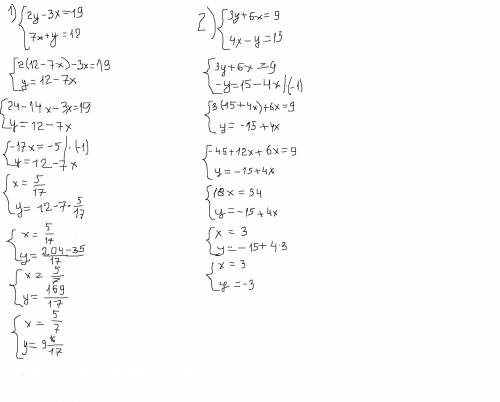 1) { 2y-3x=19
7x+y=12
{ 2(12-7x)-3x=19
y=12-7x
{ 24-14x-3x=19
y=12-7x
{ -17x=-5 |·(-1)
y=12-7x
{ x=5/17
y=12-7·5/17
{ x=5/17
y=204-35/17
{ x=5/
y=169/17
{ x=5/7
y=9 /17
2) { 3y+6x=9
4x-y=15
{ 3y+6x=9
-y=15-4x |(-1)
{ 3(15+4x)+6x=9
y=-15+4x
{ -45+12x+6x=9
y=-15+4x
{ 18x=54
y=-15+4x
{ x=3
y=-15+4·3
{ x=3
y=-3